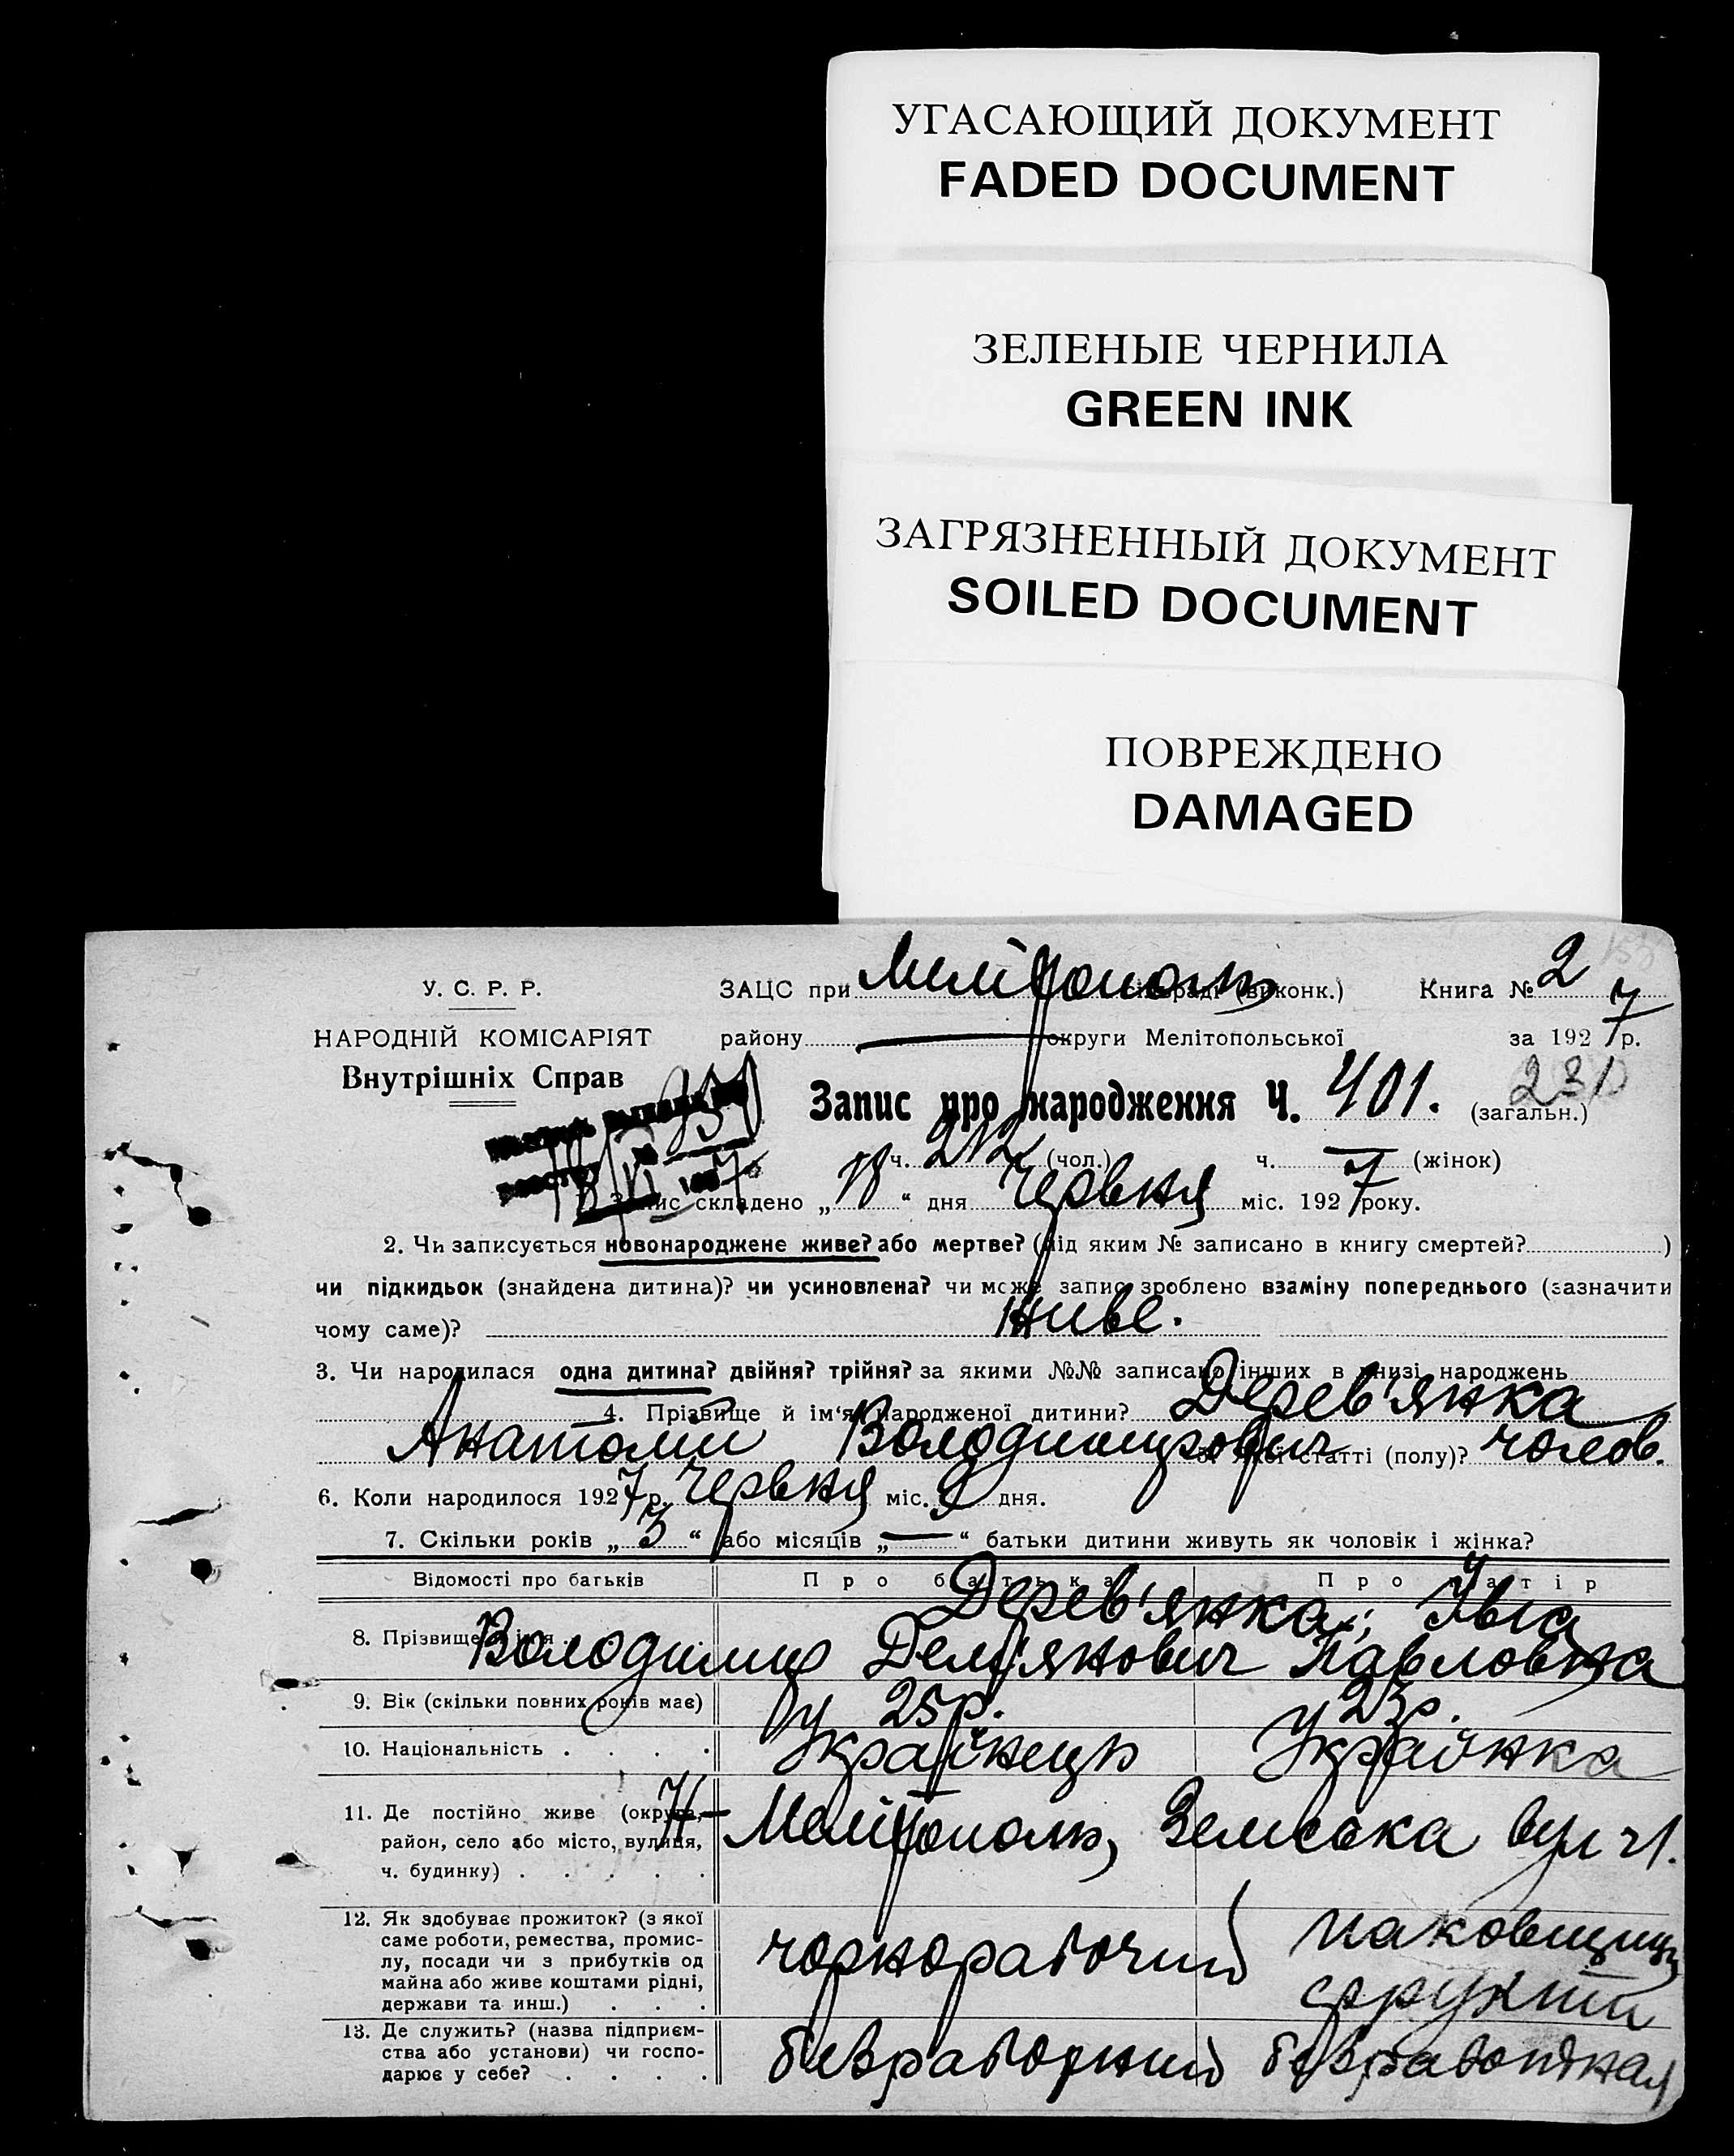 УГАСАЮЩИЙ ДОКУМЕНТ
FADED DOCUMENT
ЗЕЛЕНЫЕ ЧЕРНИЛА
GREEN INK
ЗАГРЯЗНЕННЫЙ ДОКУМЕНТ
SOILED DOCUMENT
ПОВРЕЖДЕНО
DAMAGED
У. С. Р. Р. ЗАЦС при Мелітополь (виконк.) Книга № 2
НАРОДНІЙ КОМІСАРІЯТ району округи Мелітопольської за 1927 р.
Внутрішніх Справ
Запис про народження Ч. 401. (загальн.) 231
ч. 212 (чол.) ч. — (жінок)
Запис складено „18“ дня Червня міс. 1927 року.
2. Чи записується новонароджене живе? або мертве? (під яким № записано в книгу смертей? )
чи підкидьок (знайдена дитина)? чи усиновлена? чи може запис зроблено взаміну попереднього (зазначити
чому саме)? живе.
3. Чи народилася одна дитина? двійня? трійня? за якими №№ записано інших в книзі народжень
4. Прізвище й ім'я народженої дитини? Дерев'янка
Анатолій Володимирович статті (полу)? чолов.
6. Коли народилося 1927 р. Червня міс. 9 дня.
7. Скільки років „3“ або місяців „—“ батьки дитини живуть як чоловік і жінка?
Відомості про батьків Про батька Про матір
Дерев'янка;
8. Прізвище Володимир Дем'янович Павловна
9. Вік (скільки повних років має) 25р. 23р.
10. Національність Українець Українка
11. Де постійно живе (округа, район, село або місто, вулиця, ч. будинку) Мелітополь, Земська вул
12. Як здобуває прожиток? (з якої саме роботи, ремества, промислу, посади чи з прибутків од майна або живе коштами рідні, держави та инш.) чорнорабочий паковщиця фруктів
13. Де служить? (назва підприємства або установи) чи господарює у себе? безработний безработная